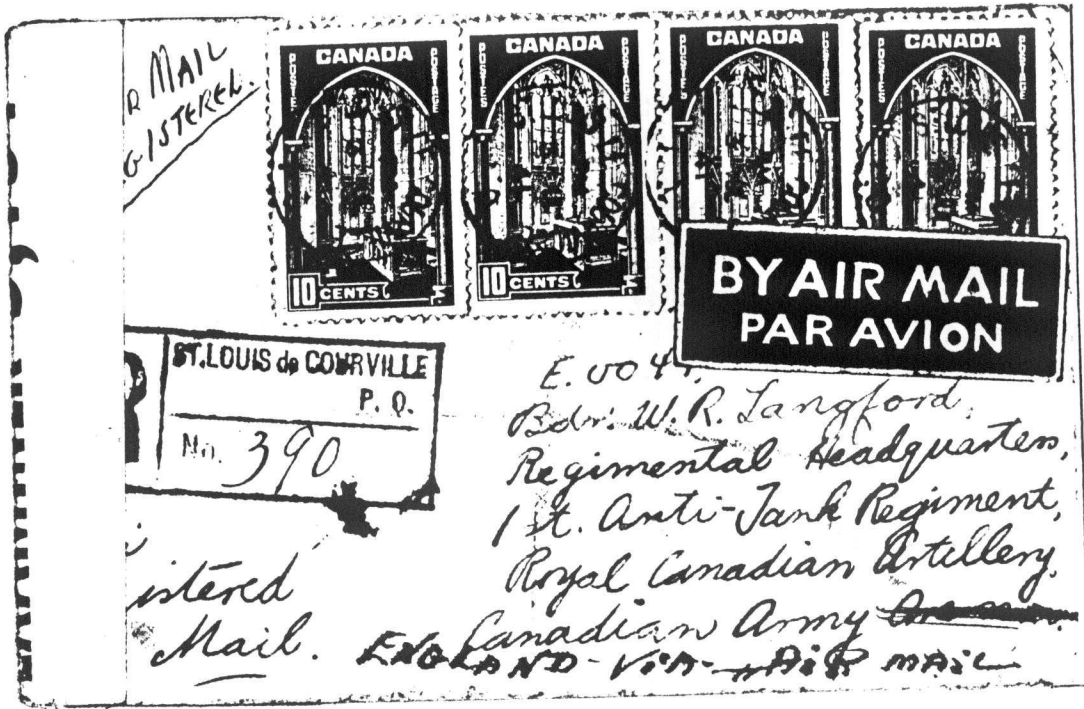 MAIL
CANADA
POSTES POSTAGE
10 CENTS
CANADA
POSTES POSTAGE
10 CENTS
CANADA
POSTES POSTAGE
CANADA
POSTES POSTAGE
BY AIR MAIL
PAR AVION
ST. LOUIS de COURVILLE
P. Q.
No. 390
Bdr. W. R. Langford,
Regimental Headquarters,
1st. Anti-Tank Regiment,
Royal Canadian Artillery.
Canadian Army
istered
Mail.
ENGLAND - VIA - AIR MAIL